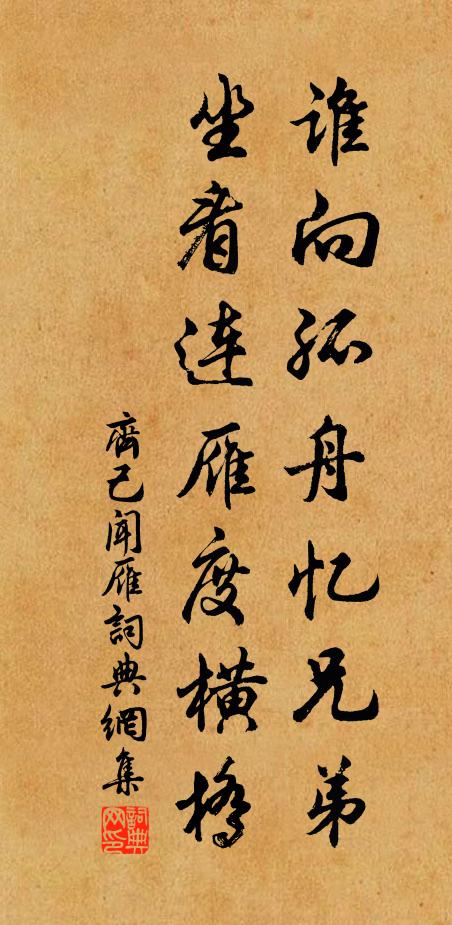 谁向孤舟忆兄弟
坐看连雁度横桥
齊己闻雁詞典網集
詞典网印